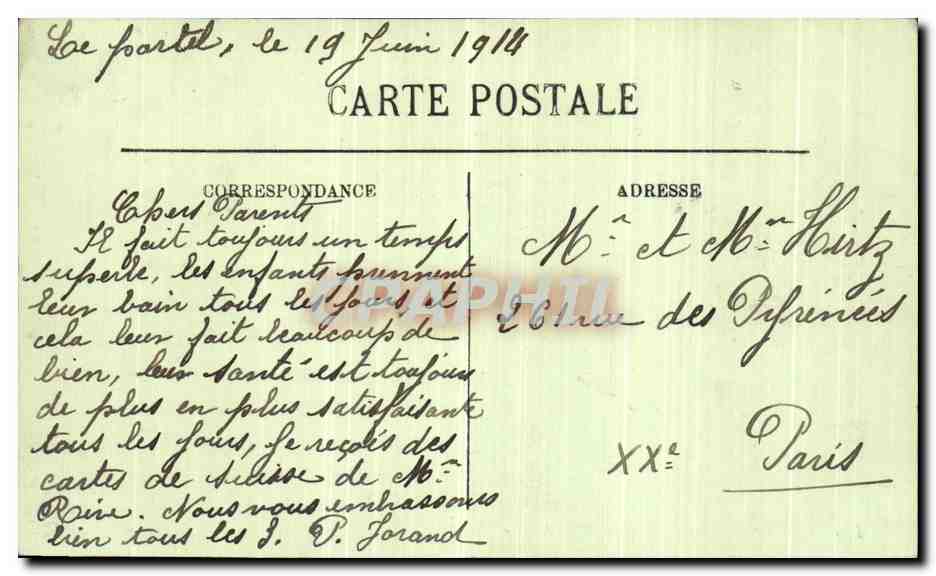 Le portel, le 19 Juin 1914
CARTE POSTALE
CORRESPONDANCE
Chers Parents
Il fait toujours un temps
superbe, les enfants prennent
leur bain tous les jours, et
cela leur fait beaucoup de
bien, leur santé est toujours
de plus en plus satisfaisante
tous les jours, je reçois des
cartes de Suisse de Mme
Rive. Nous vous embrassons
bien tous les 3. P. Jorand
ADRESSE
Mr et Mme Hirtz
261 rue des Pyrénées
Paris
XXe
CPAPHIL